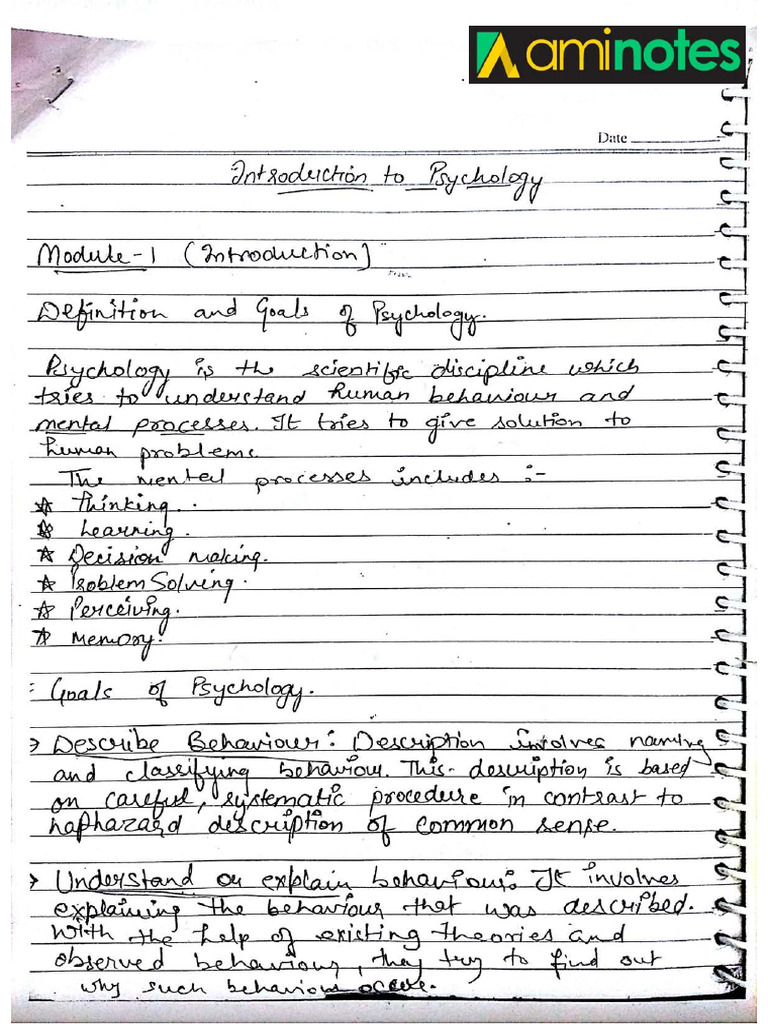 aminotes
Date
Introduction to Psychology
Module-1 (Introduction)
Definition and Goals of Psychology.
Psychology is the scientific discipline which
tries to understand human behaviour and
mental processes. It tries to give solution to
human problems
The mental processes includes :-
★ Thinking.
★ Learning.
★ Decision making.
★ Problem Solving.
★ Perceiving.
★ Memory.
Goals of Psychology.
→ Describe Behaviour: Description involves naming
and classifying behaviour. This description is based
on careful, systematic procedure in contrast to
haphazard description of common sense.
→ Understand or explain behaviour: It involves
explaining the behaviour that was described.
With the help of existing theories and
observed behaviour, they try to find out
why such behaviour occur.